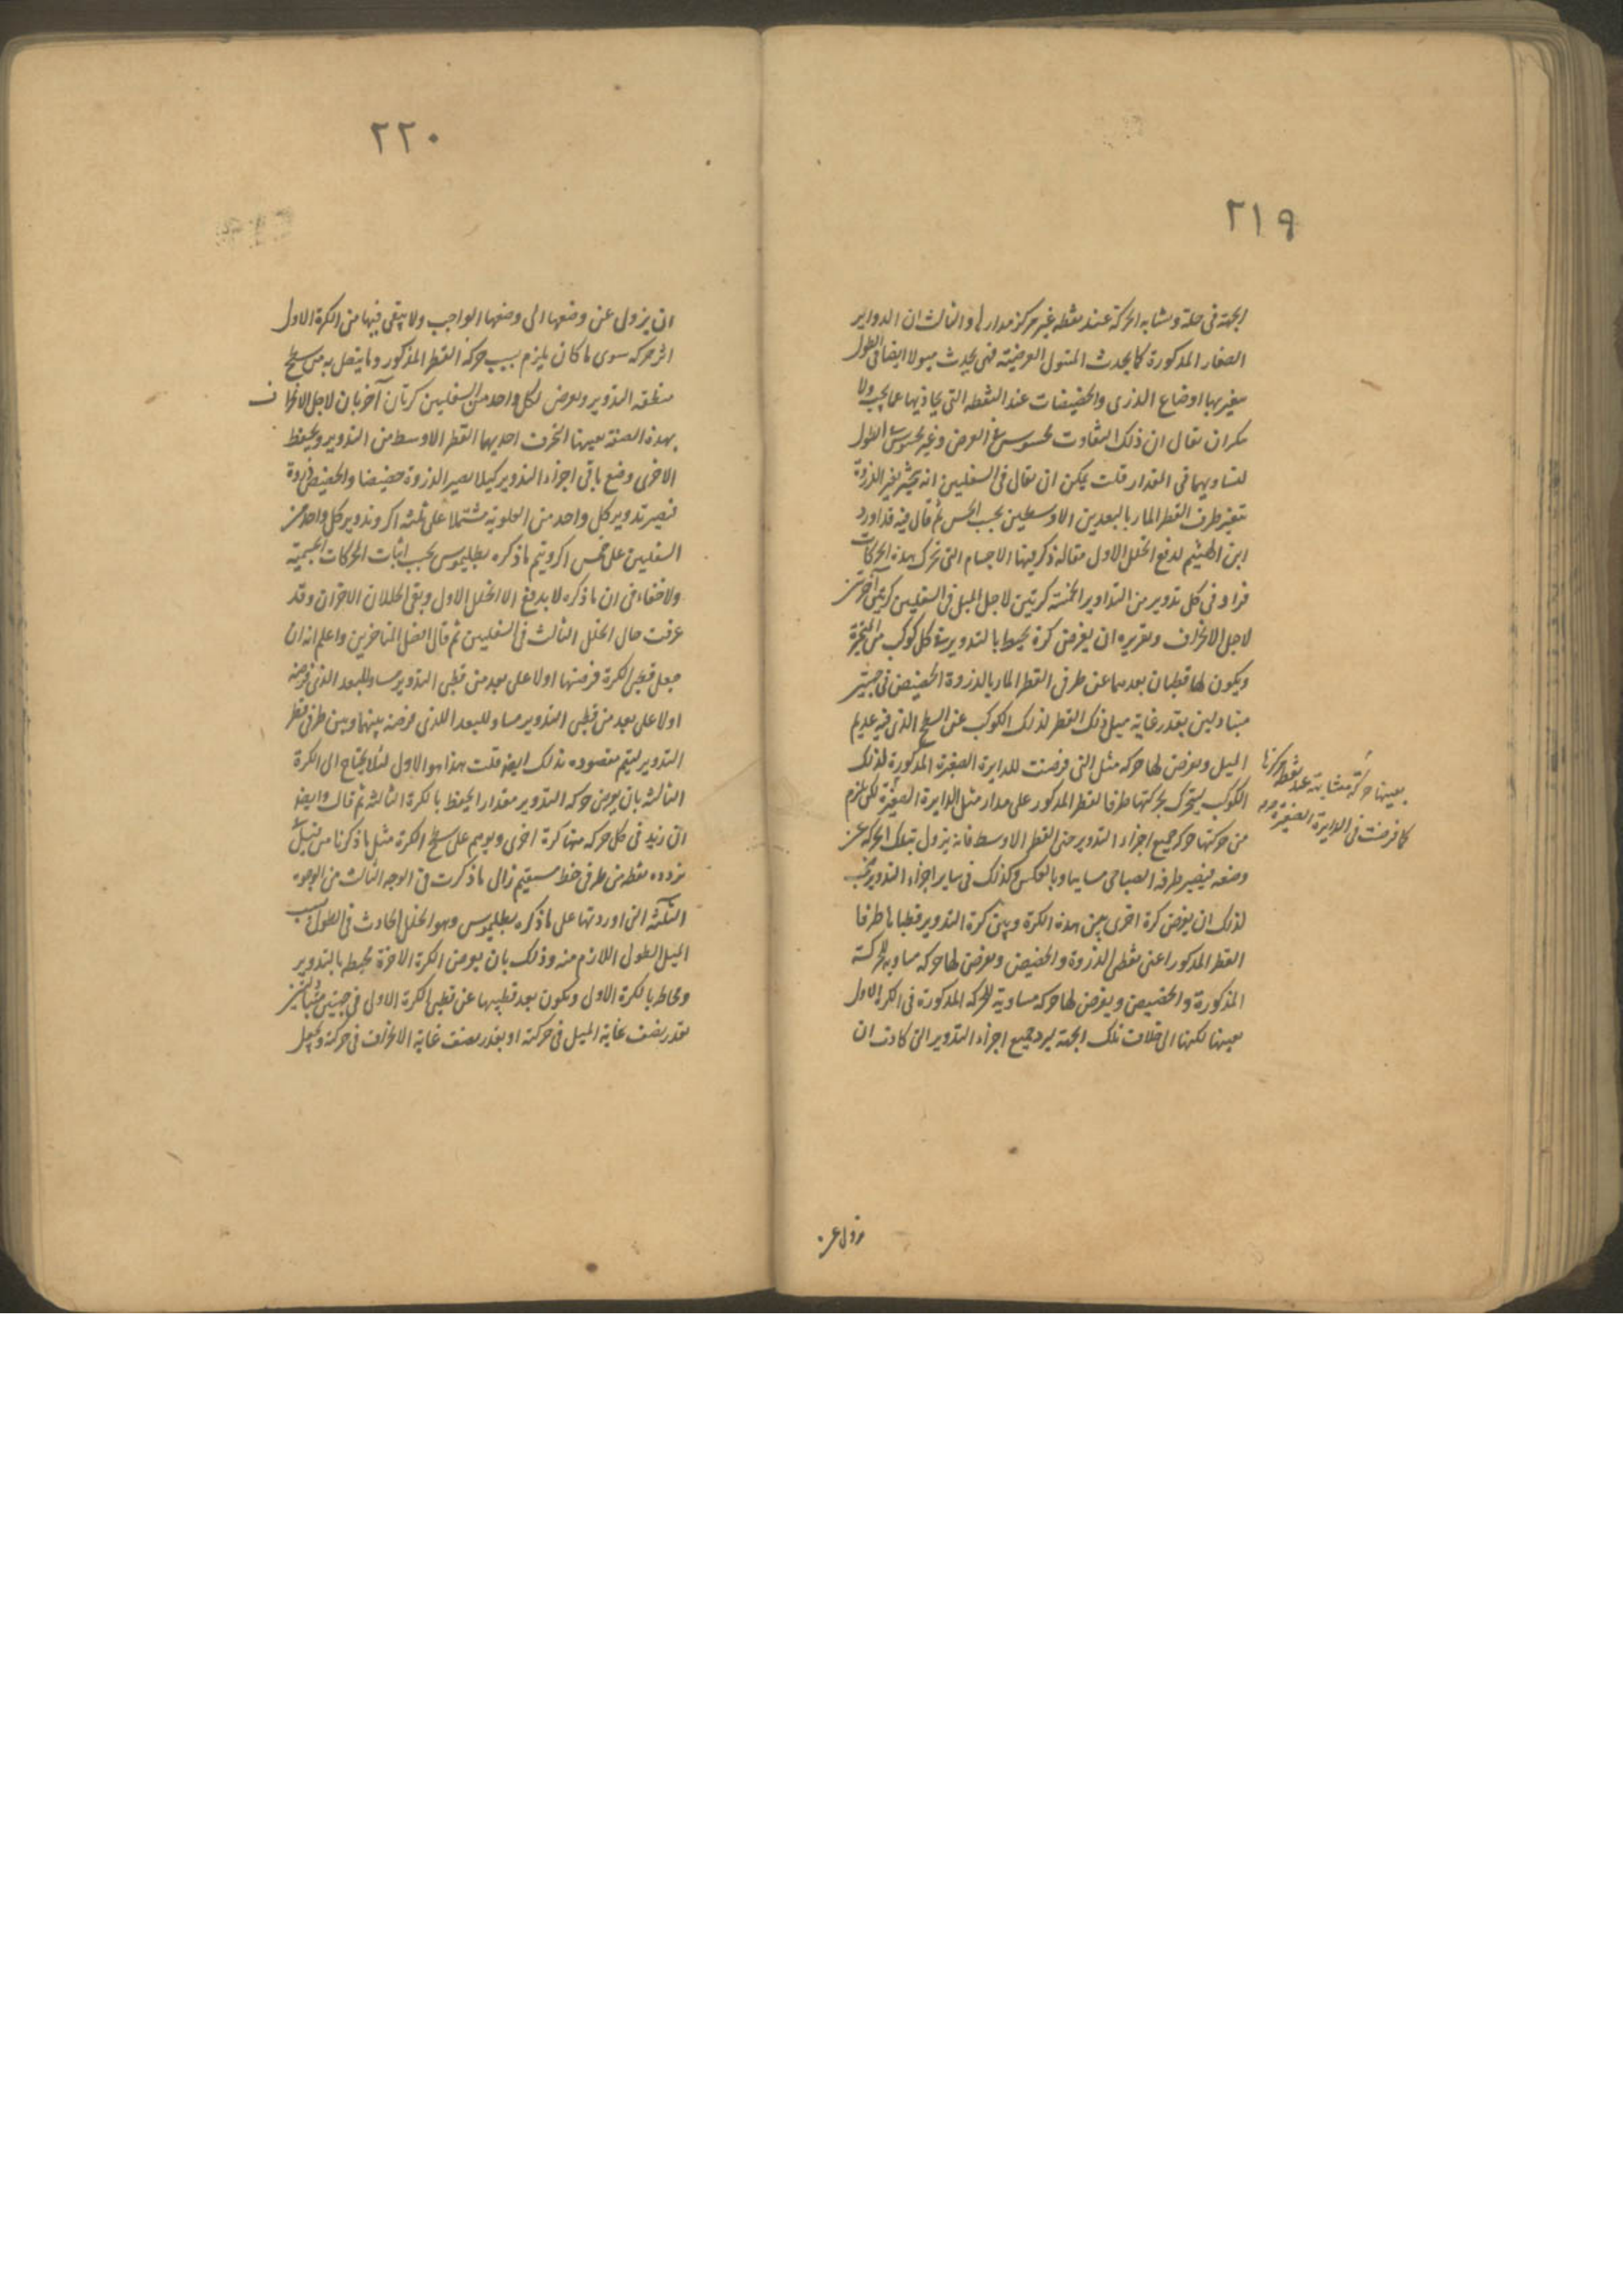 ٢١٩
الجهة فى حلة وتشابه الحركة عند نقطه غير مركز مدارها والثالث ان الدواير
الصغار المذكورة كما يحدث الميول العرضيته فهى يحدث ميولا ايضا فى الطول
يتغير بها اوضاع الذرى والحضيضات عند النقطه التى يحاذيها عما يجب ولا
يمكن ان يقال ان ذلك التفاوت محسوس فى العرض وغير محسوس فى الطول
لتساويهما فى المقدار قلت يمكن ان يقال فى السفليين انه يتغير الذروة
بتغير طرف القطر المار بالبعدين الاوسطين بحسب الحس ثم قال فيه قد اورد
ابن الهيثم لدفع الخلل الاول مقاله ذكر فيها الاجسام التى تحرك بهذه الحركات
فزاد فى كل تدوير من التداوير الخمسة كرتين لاجل الميل وفى السفليين كرتين آخرتين
لاجل الانحراف وتقريره ان يفرض كرة يحيط بالتدوير فى كل كوكب من المتحيرة
ويكون لها قطبان بعدهما عن طرفى القطر المار بالذروة والحضيض فى جهتين
متبادلتين بقدر غاية ميل ذلك القطر لذلك الكوكب عن السطح الذى فيه عديم
الميل ويفرض لها حركه مثل التى فرضت للدايرة الصغيرة المذكورة لذلك
بعينها حركة متشابهة عند نقطه مركزها
كما فرضت فى الدايرة الصغيرة
الكوكب ليتحرك بحركتها طرفا القطر المذكور على مدار مثل الدايرة الصغيرة لكن يلزم
من حركتها حركة جميع اجزاء التدوير حتى القطر الاوسط فانه يزول بتلك الحركه عن
وضعه فيصير طرفه الصباحى مسايا وبالعكس وكذلك فى ساير اجزاء التدوير فيجب
لذلك ان يفرض كرة اخرى بين هذه الكرة وبين كرة التدوير قطباها طرفا
القطر المذكور اعنى نقطتى الذروة والحضيض ويفرض لها حركه مساويه للحركة
المذكورة والحضيض ويفرض لها حركه مساوية للحركه المذكورة فى الكرة الاولى
بعينها لكنها الى خلاف تلك الجهة ليرد جميع اجزاء التدوير التى كادت ان
٢٢٠
ان يزول عن وضعها الى وضعها الواجب ولا يبقى فيها من الكرة الاولى
اثر حركه سوى ما كان يلزم بسبب حركة القطر المذكور وما يتصل به من سطح
منطقه التدوير ويعرض لكل واحد من السفليين كرتان آخريان لاجل الانحراف
بهذه الصفة بعينها انحرف احديهما القطر الاوسط من التدوير ويحفظ
الاخرى وضع باقى اجزاء التدوير كيلا يصير الذروة حضيضا والحضيض ذروة
فيصير تدوير كل واحد من العلوية مشتملا على ثلثه اكر وتدوير كل واحد من
السفليين على خمس اكر ويتم ما ذكره بطليموس بحسب اثبات الحركات الجسمية
ولا خفاء فى ان ما ذكره لا يدفع الا الخلل الاول وبقى الخللان الاخران وقد
عرفت حال الخلل الثالث فى السفليين ثم قال افضل المتاخرين واعلم انه ان
جعل قطبى الكرة فرضتها اولا على بعد من قطبى التدوير مساو للبعد الذى فرضه
اولا على بعد من قطبى التدوير مساو للبعد الذى فرضه بينهما وبين طرفى قطر
التدوير ليتم مقصوده بذلك ايضا قلت هذا هو الاول لئلا يحتاج الى الكرة
الثالثه بان يعرض حركه التدوير مقدارا يحفظ بالكرة الثالثه ثم قال وايضا
ان زيد فى كل حركه منها كرة اخرى ويوهم على سطح الكرة مثل ما ذكرنا من
تردده نقطه من طرفى خط مستقيم زال ما ذكرت فى الوجه الثالث من الوجوه
الثلثة التى اوردتها على ما ذكره بطليموس وهو الخلل الحادث فى الطول بسبب
الميل الطولى اللازم منه وذلك بان يعرض الكرة الاخرة محيط بالتدوير
ومحاطه بالكرة الاولى ويكون بعد قطبيها عن قطبى الكرة الاولى فى جهتين متبادلتين
بقدر نصف غاية الميل فى حركته او بقدر نصف غاية الانحراف فى حركته ويجعل